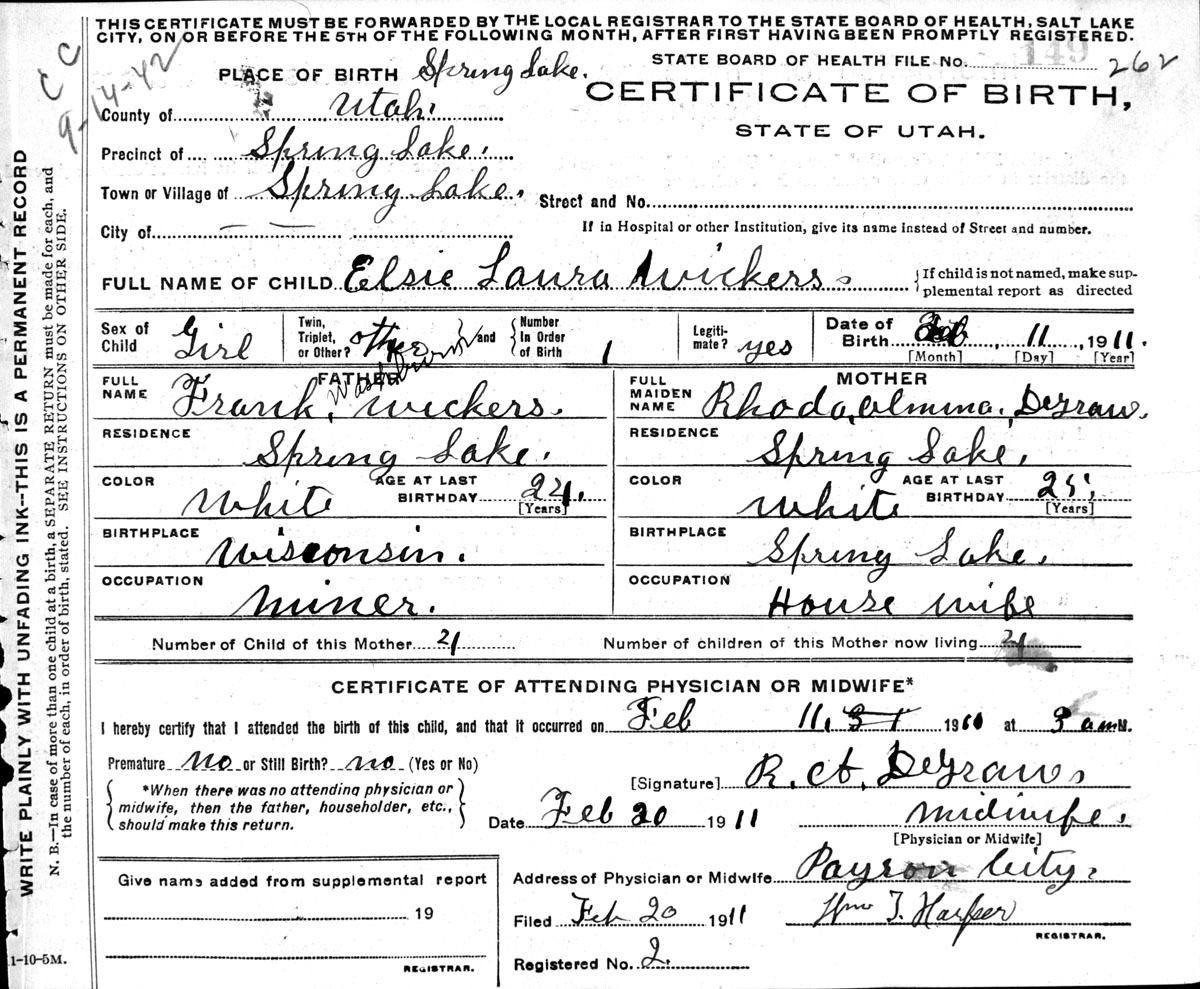 THIS CERTIFICATE MUST BE FORWARDED BY THE LOCAL REGISTRAR TO THE STATE BOARD OF HEALTH, SALT LAKE
CITY, ON OR BEFORE THE 5TH OF THE FOLLOWING MONTH, AFTER FIRST HAVING BEEN PROMPTLY REGISTERED.
C C
9-14-42
PLACE OF BIRTH Spring Lake.
STATE BOARD OF HEALTH FILE NO. 149 262
CERTIFICATE OF BIRTH,
STATE OF UTAH.
County of Utah.
Precinct of Spring Lake.
Town or Village of Spring Lake.
Street and No.
City of — —
If in Hospital or other Institution, give its name instead of Street and number.
FULL NAME OF CHILD Elsie Laura Wickers
{If child is not named, make sup-
plemental report as directed
Sex of Child Girl
Twin, Triplet, or Other? other
and
Number In Order of Birth 1
Legiti-mate? yes
Date of Birth Feb, 11, 1911.
[Month] [Day] [Year]
FATHER
FULL NAME Frank, Washburn Wickers.
RESIDENCE Spring Lake.
COLOR White
AGE AT LAST BIRTHDAY 24.
[Years]
BIRTHPLACE Wisconsin.
OCCUPATION Miner.
MOTHER
FULL MAIDEN NAME Rhoda, Almina, DeGraw.
RESIDENCE Spring Lake.
COLOR White
AGE AT LAST BIRTHDAY
[Years]
BIRTHPLACE Spring Lake.
OCCUPATION House wife
Number of Child of this Mother
Number of children of this Mother now living
CERTIFICATE OF ATTENDING PHYSICIAN OR MIDWIFE*
I hereby certify that I attended the birth of this child, and that it occurred on Feb 11, 1911 at 3 am M.
Premature no or Still Birth? no (Yes or No)
{*When there was no attending physician or
midwife, then the father, householder, etc.,
should make this return.}
[Signature] R. A. DeGraw
Date Feb 20 1911
Midwife.
[Physician or Midwife]
Address of Physician or Midwife Payson City.
Give name added from supplemental report
19
REGISTRAR.
Filed Feb 20 1911
Wm T. Harper
REGISTRAR.
Registered No. 2.
WRITE PLAINLY WITH UNFADING INK--THIS IS A PERMANENT RECORD
N. B.—In case of more than one child at a birth, a SEPARATE RETURN must be made for each, and
the number of each, in order of birth, stated. SEE INSTRUCTIONS ON OTHER SIDE.
1-10-5M.